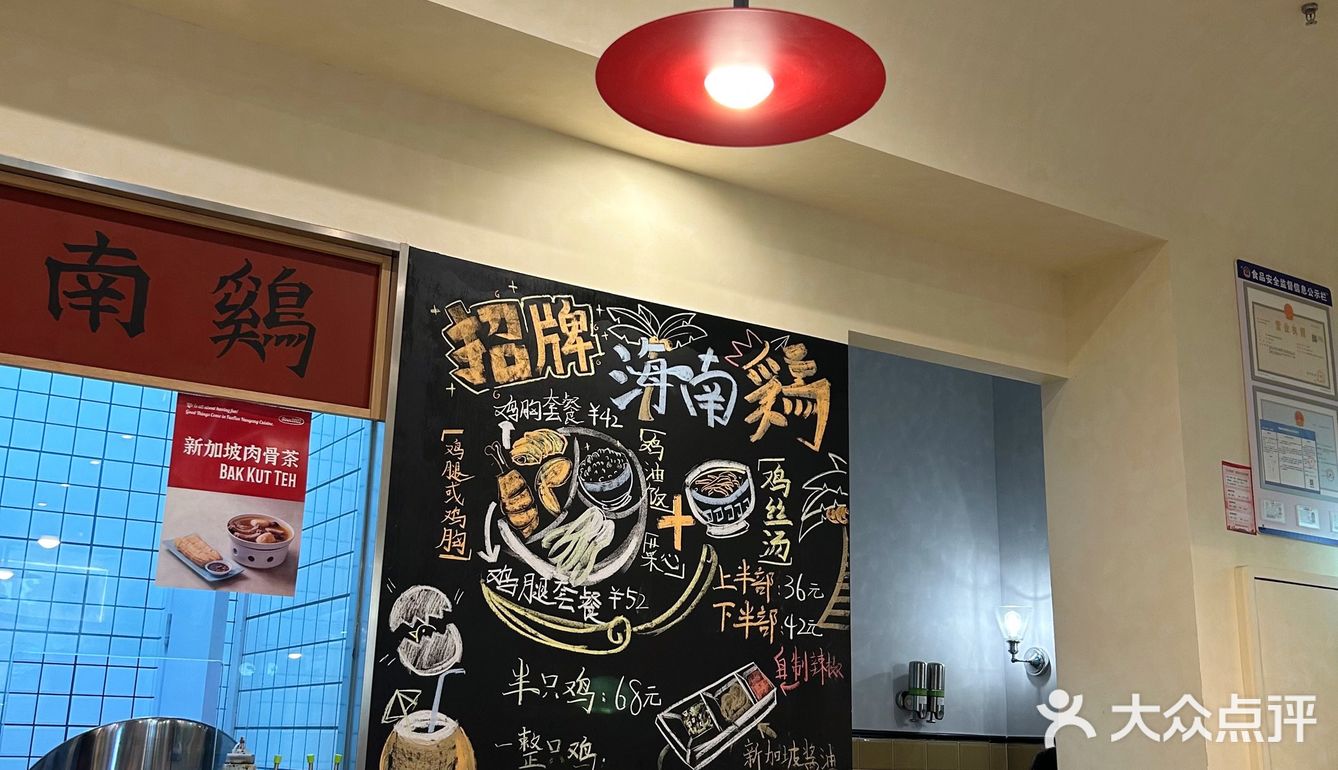 南鷄
It's all about having fun!
Good Things Come in YunTun Nanyang Cuisine.
新加坡肉骨茶
BAK KUT TEH
招牌
海南鷄
鸡胸套餐 ¥42
鸡腿或鸡胸
鸡油饭
菜心
+
鸡丝汤
鸡腿套餐 ¥52
上半部:36元
下半部:42元
半只鸡:68元
一整只鸡:
自制辣椒
新加坡酱油
食品安全监督信息公示栏
营业执照
大众点评